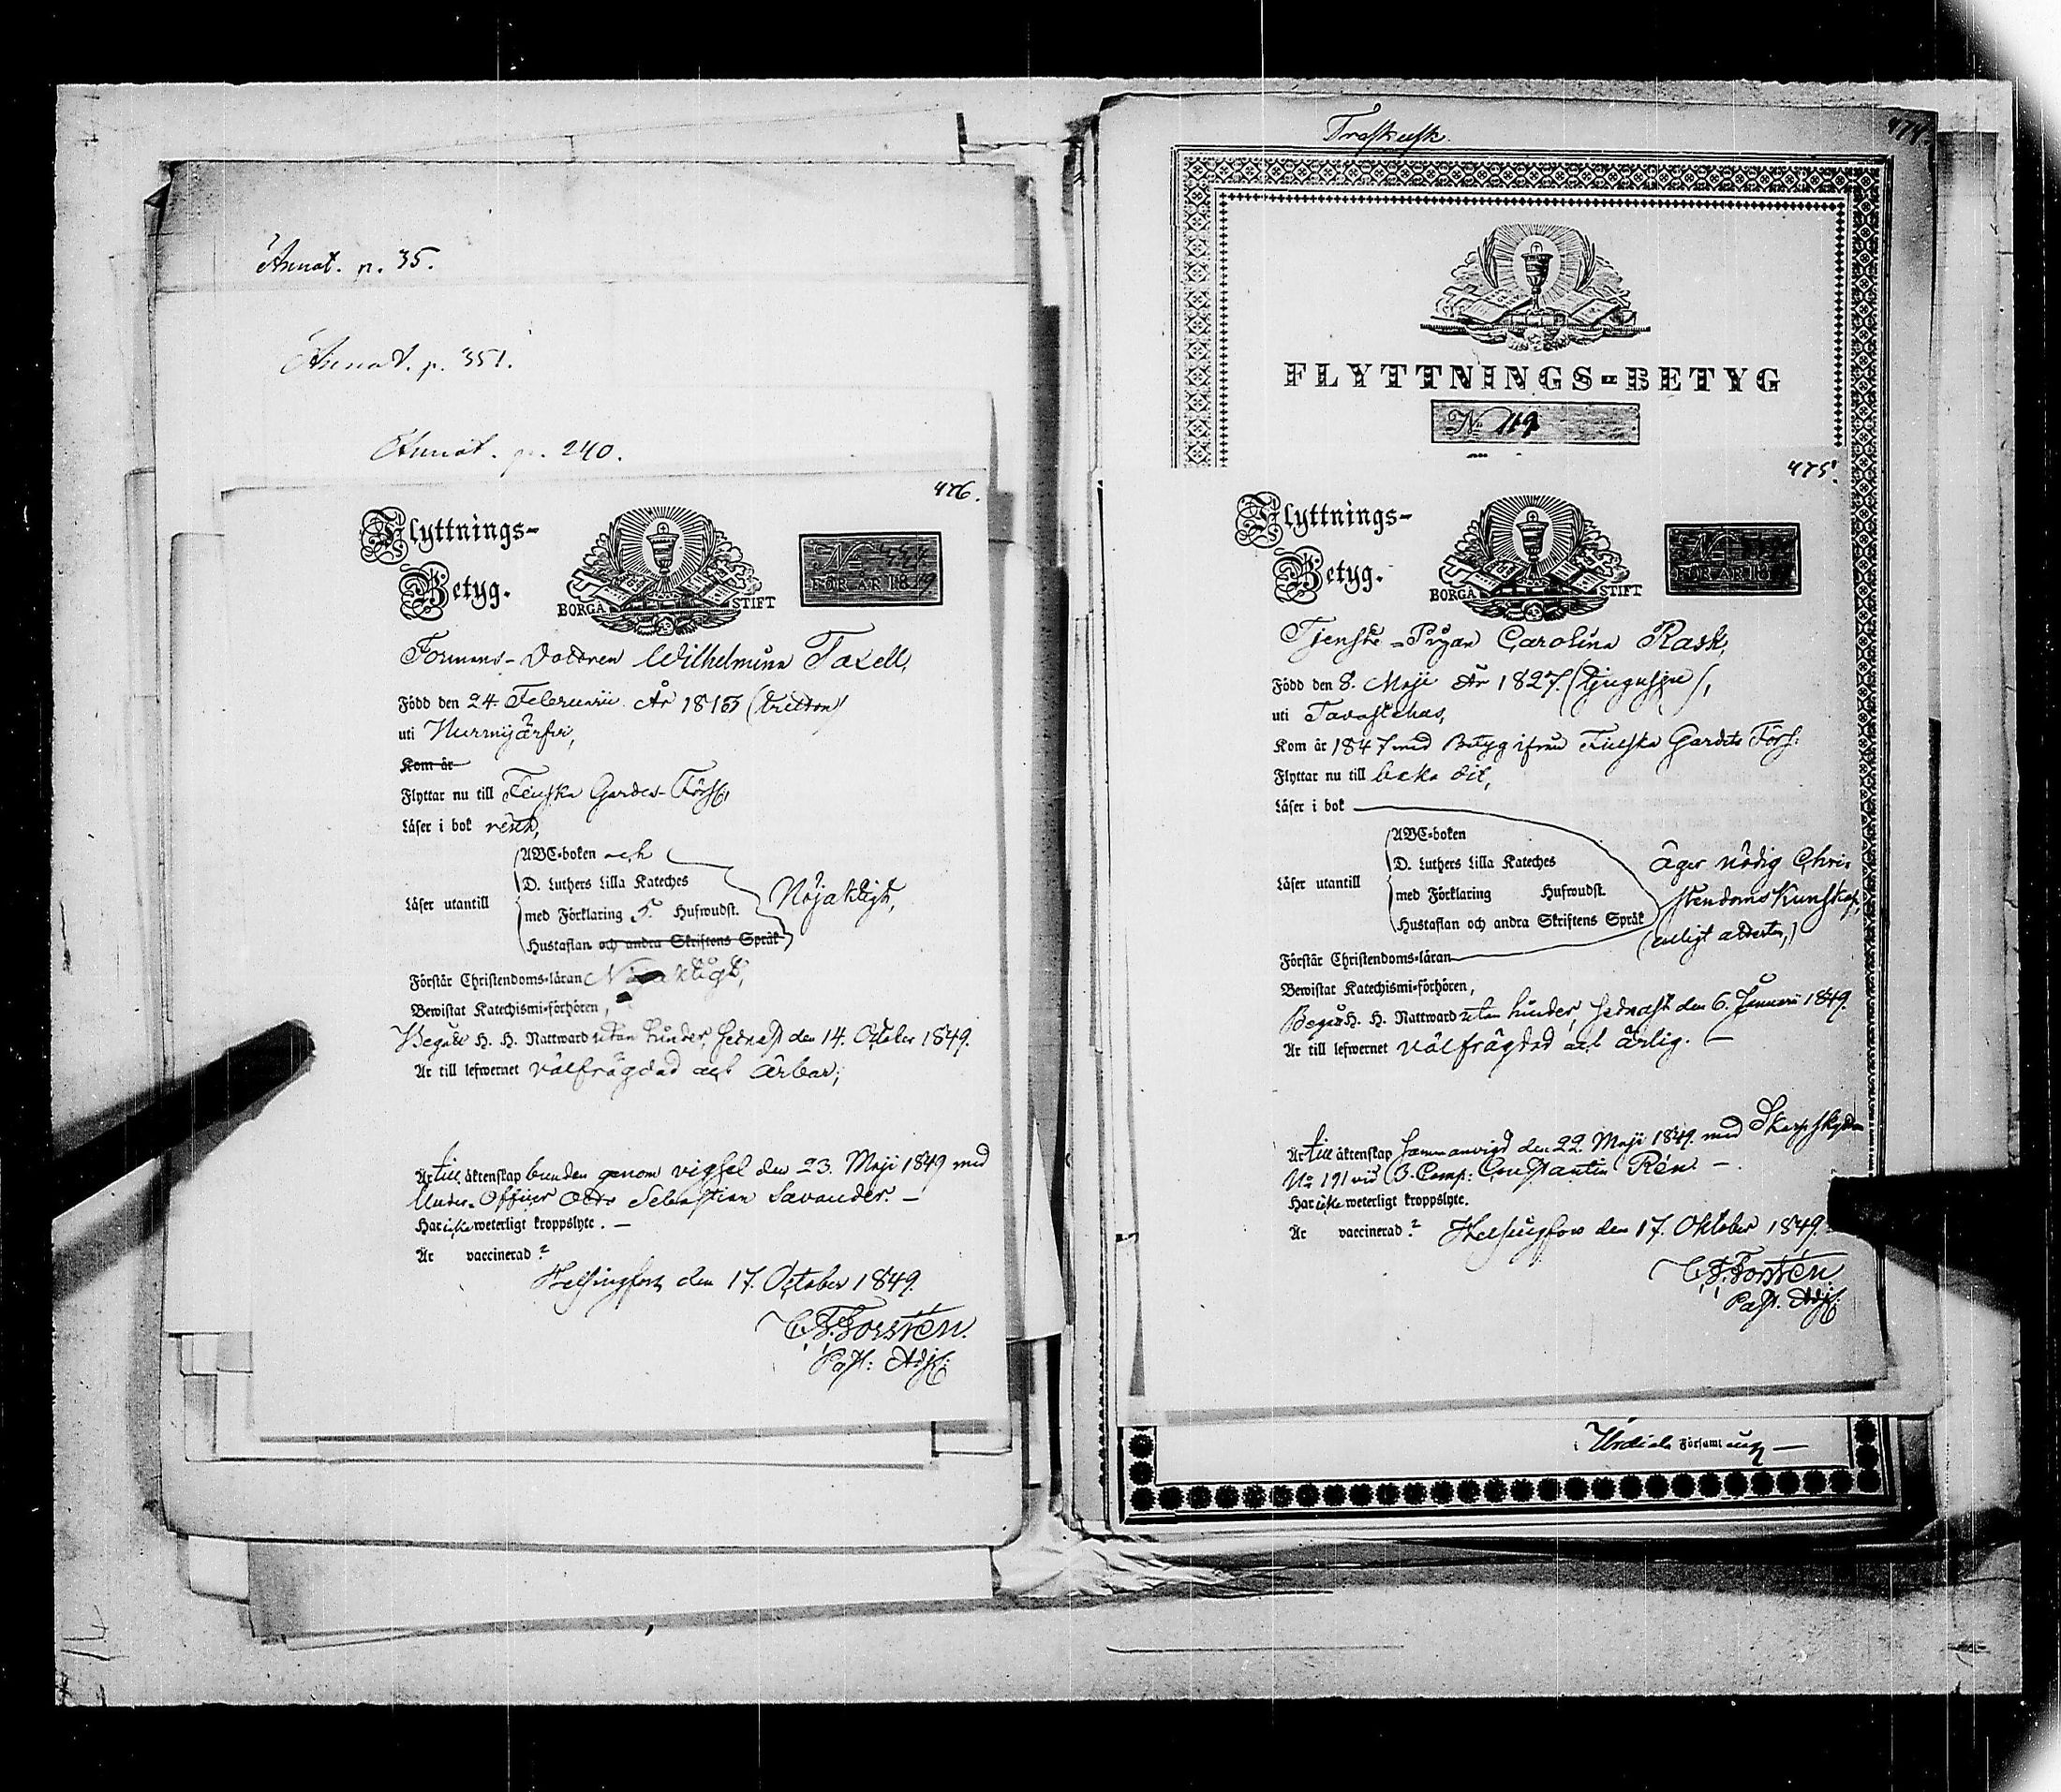 Annot. p. 35.
Annot. p. 351.
Annot. p. 240.
476.
Flyttnings-
Betyg.
BORGÅ STIFT
N
FÖR ÅR 18 9
Formans-Dottren Wilhelmina Taxell,
Född den 24 Februarii År 18 (tretton)
uti Nurmijärfvi,
Kom år
Flyttar nu till Finska Gardes-Förs.
Läser i bok
ABC-boken och
D. Luthers Lilla Kateches
Läser utantill
med Förklaring 5. Hufwudst.
Nöjaktigt,
Hustaflan och andra Skriftens Språk
Förstår Christendoms-läran Nöjaktigt,
Bewistat Katechismi-förhören,
Begått H. H. Nattward utan hinder, sednast den 14. October 1849.
Är till lefwernet välfrägdad och ärbar;
Är till äktenskap bunden genom vigsel den 23. Maji 1849 med
Under-Officer Otto Sebastian Savander. —
Har icke weterligt kroppslyte. —
Är vaccinerad?
Helsingfors den 17. October 1849.
C. F. Forstén.
Past: Adj:
Träskusk.
474.
FLYTTNINGS-BETYG
No 119
475.
Flyttnings-
Betyg.
BORGÅ STIFT
N
FÖR ÅR 18
Tjenste-Pigan Carolina Rask,
Född den 8. Maji År 1827. (tjugusju),
uti Tavastehus,
Kom år 1847 med Betyg ifrån Finska Gardets Förs:
Flyttar nu till baka dit,
Läser i bok
ABC-boken
D. Luthers Lilla Kateches
Läser utantill
med Förklaring Hufwudst.
Hustaflan och andra Skriftens Språk
äger nödig Chri-
stendoms Kunskap,
(enligt attesten,)
Förstår Christendoms-läran
Bewistat Katechismi-förhören,
Begått H. H. Nattward utan hinder, sednast den 6. Januari 1849.
Är till lefwernet välfrägdad och ärlig. —
Är till äktenskap sammanvigd den 22. Maji 1849. med Skarpskytten
No 191 vid 3. Comp: Constantin Rén. —
Har icke weterligt kroppslyte.
Är vaccinerad? Helsingfors den 17. Oktober 1849.
C. F. Forstén
Past. Adj:
Urdiala Församling —